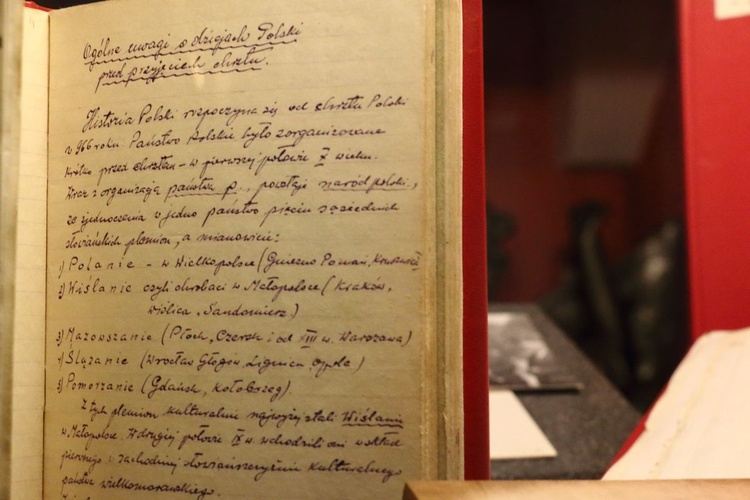 Ogólne uwagi o dziejach Polski
przed przyjęciem chrztu.
Historia Polski rozpoczyna się od chrztu Polski
w 966 roku. Państwo Polskie było zorganizowane
krótko przed chrztem - w pierwszej połowie X wieku.
Wraz z organizacją państwa p., powstaje naród polski,
ze zjednoczenia w jedno państwo pięciu sąsiednich
słowiańskich plemion, a mianowicie:
1) Polanie - w Wielkopolsce (Gniezno Poznań, Kruszwica
2) Wiślanie czyli chrobaci w Małopolsce (Kraków,
Wiślica, Sandomierz)
3) Mazowszanie (Płock, Czersk i od XIII w. Warszawa)
4) Ślązanie (Wrocław Głogów, Lignica Opole)
5) Pomorzanie (Gdańsk, Kołobrzeg)
Z tych plemion kulturalnie najwyżej stali Wiślanie
w Małopolsce. W drugiej połowie IX w. wchodzili oni w skład
pierwszego w zachodniej słowiańszczyźnie kulturalnego
państwa wielkomorawskiego.